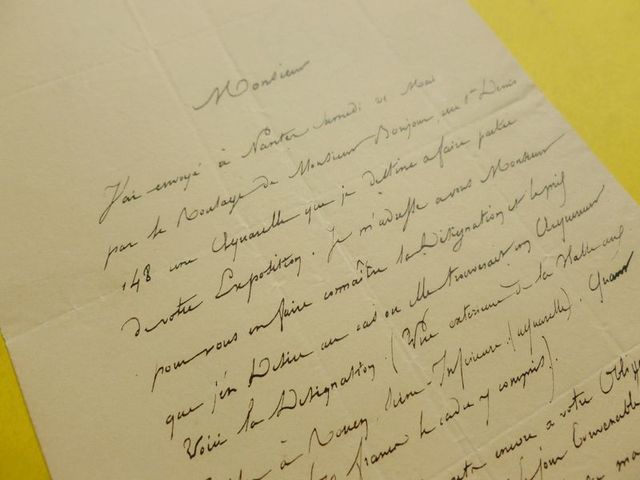 Monsieur
J'ai envoyé à Nantes Samedi 21 Mai
par le Roulage de Monsieur Bonjour, rue St Denis
148 une Aquarelle que je destine a faire partie
de votre Exposition. Je m'adresse a vous Monsieur
pour vous en faire connaître la Désignation et le prix
que j'en Désire au cas ou elle trouverait un Acquereur
Voici la Désignation. (Vue exterieure de la Halle aux
à Rouen, Seine-Inférieure. (aquarelle). Quant
francs le cadre y compris).
encore a votre
jour Convenable